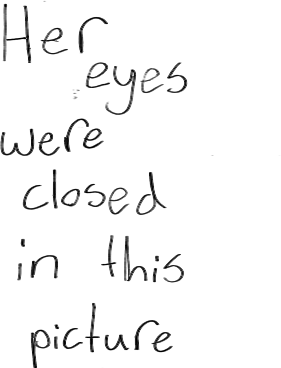 Her
eyes
were
closed
in this
picture